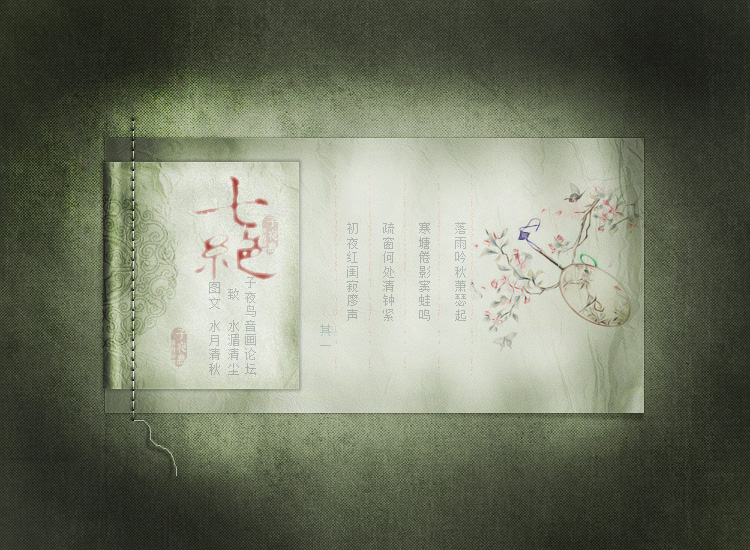 七绝
子夜鸟音画论坛
致 水湄清尘
图文 水月清秋
其一
落雨吟秋萧瑟起
寒塘倦影寞蛙鸣
疏窗何处清钟紧
初夜红闺寂廖声